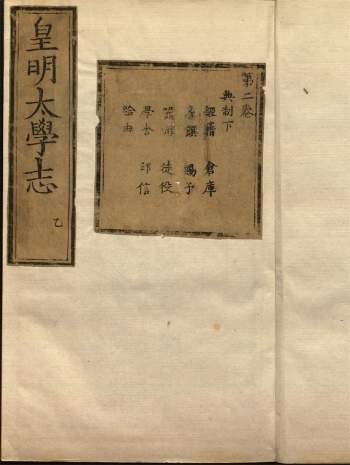 皇明太學志 乙
第二卷
典制下
經籍 倉庫
賜予
徒役
學舍 印信
給由